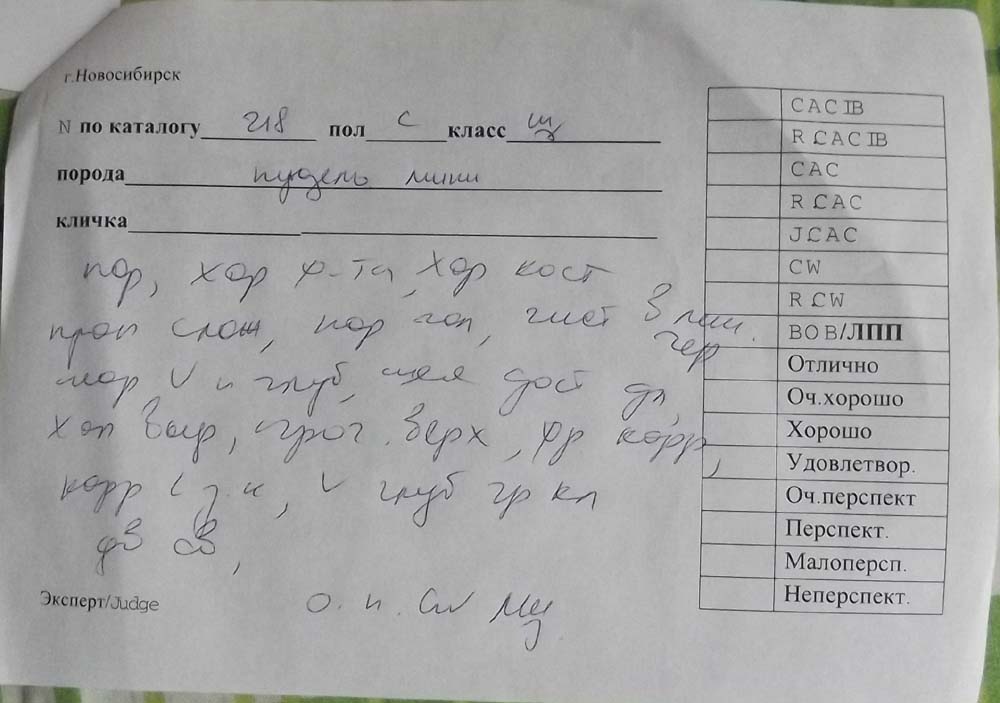 г.Новосибирск
N по каталогу 218 пол с класс щ
порода пудель мини
кличка
пор, хор ф-та, хор кост
проп слож, пор гол, чист
шея дост дл,
хол выр, проч. верх, фр корр,
корр глуб гр кл
дв св,
Эксперт/Judge
CACIB
R.CACIB
CAC
R.CAC
J.CAC
CW
R.CW
BOB/ЛПП
Отлично
Оч.хорошо
Хорошо
Удовлетвор.
Оч.перспект
Перспект.
Малоперсп.
Неперспект.